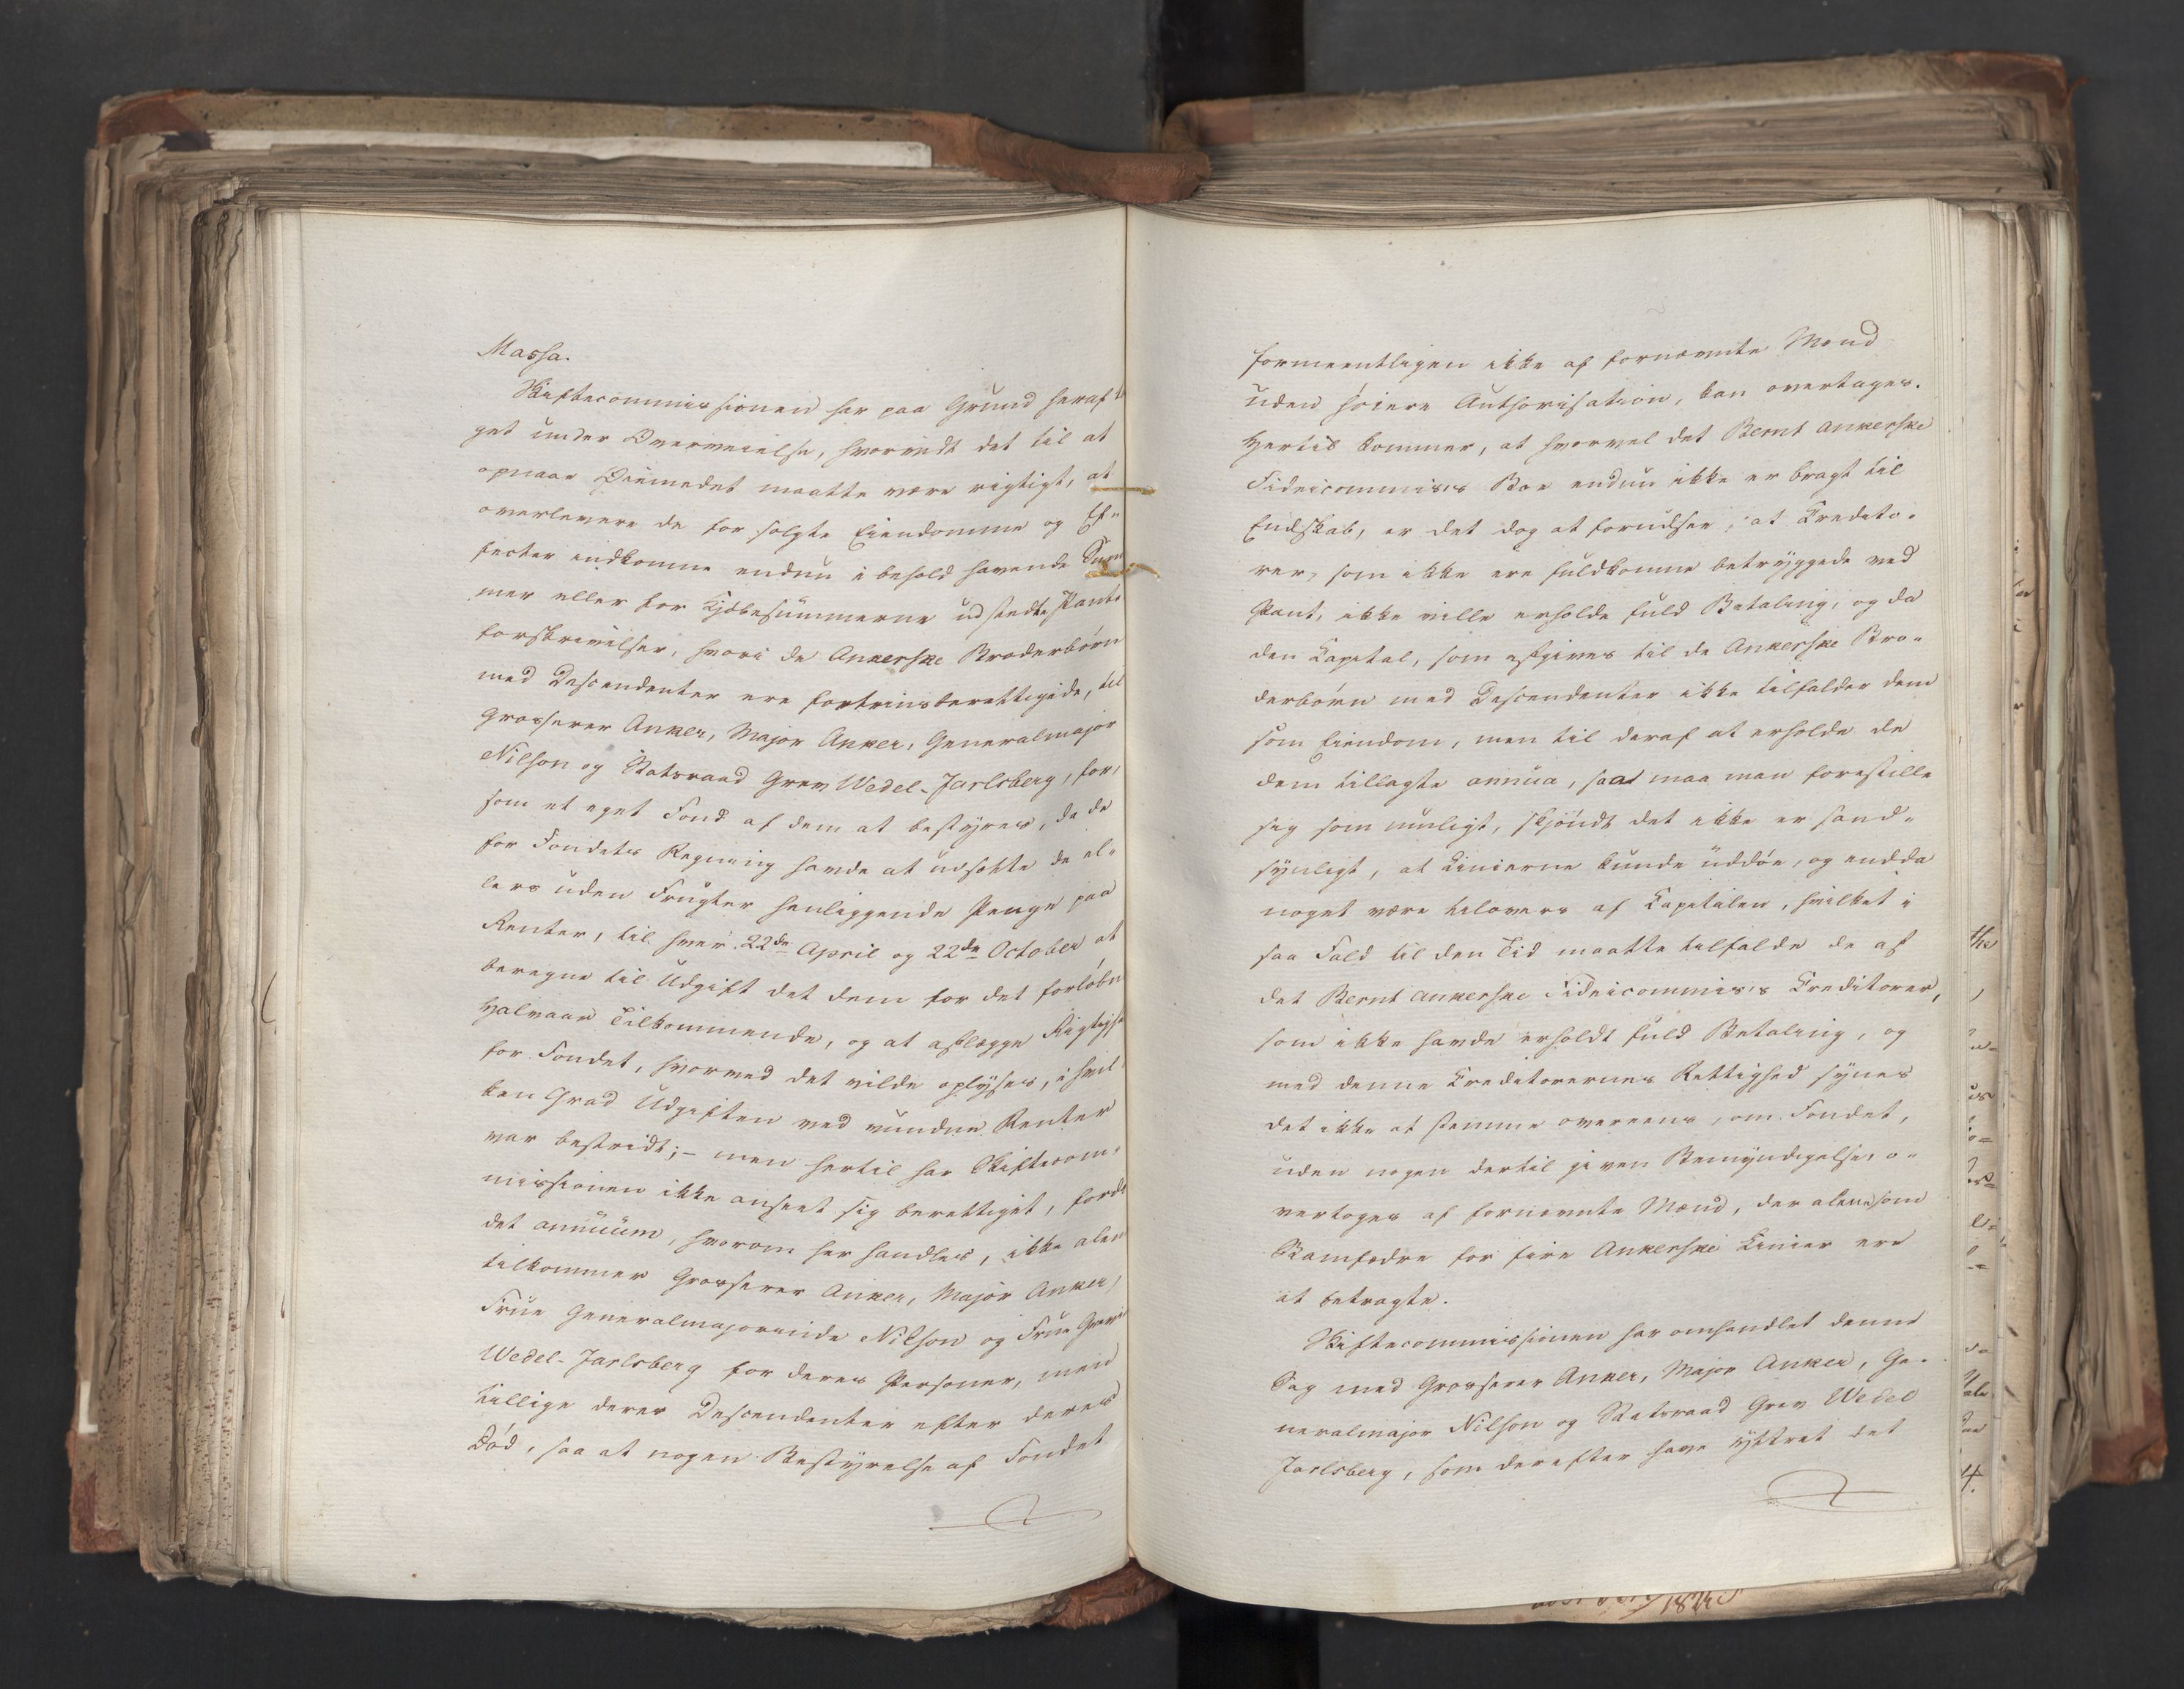 Massa.
Skiftecommissionen har paa Grund heraf ta
get under Overveielse, hvorvidt det til at
opnaae Øiemedet maatte være rigtigt, at
overlevere de for solgte Eiendomme og Ef-
fecter indkomne endnu i behold havende Sum
mer eller for Kjöbesummerne udstedte Pante
forskrivelser, hvori de Ankerske Broderbörn
med Descendenter ere fortrinsberettigede, til
Grosserer Anker, Major Anker, Generalmajor
Nilson og Statsraad Grev Wedel-Jarlsberg, for,
som et eget Fond af dem at bestyres, da de
for Fondets Regning havde at udsætte de el-
lers uden Frugter henliggende Penge paa
Renter, til hver 22de April og 22de October at
beregne til Udgift det dem for det forløbne
Halvaar Tilkommende, og at aflægge Rigtighed
for Fondet, hvorved det vilde oplyses, i hvil-
ken Grad Udgiften ved vundne Renter
var bestridt; - men hertil har Skiftecom-
missionen ikke anseet sig berettiget, fordi
det annuum, hvorom her handles, ikke alene
tilkommer Grosserer Anker, Major Anker,
Frue Generalmajorinde Nilson og Frue Grevinde
Wedel-Jarlsberg for deres Personer, men
tillige deres Descendenter efter deres
Död, saa at nogen Bestyrelse af Fondet
formeentligen ikke af fornævnte Mænd
uden höiere Authorisation, kan overtages.
Hertil kommer, at hvorvel det Bernt Ankerske
Fideicommiss Boe endnu ikke er bragt til
Endskab, er det dog at forudsee, at Credito-
rer, som ikke ere fuldkomne betryggede ved
Pant, ikke ville erholde fuld Betaling, og da
den Capital, som afgives til de Ankerske Bro-
derbörn med Descendenter ikke tilfalder dem
som Eiendom, men til deraf at erholde de
dem tillagte annua, saa maa man forestille
sig som muligt, skjöndt det ikke er sand-
synligt, at Linierne kunde uddöe, og endda
noget være tilovers af Capitalen, hvilket i
saa Fald til den Tid maatte tilfalde de af
det Bernt Ankerske Fideicommis's Creditorer,
som ikke havde erholdt fuld Betaling, og
med denne Creditorernes Rettighed synes
det ikke at stemme overeens, om Fondet,
uden nogen dertil given Bemyndigelse, o-
vertoges af fornævnte Mænd, der alene som
Stamfædre for fire Ankerske Linier ere
at betragte.
Skiftecommissionen har omhandlet denne
Sag med Grosserer Anker, Major Anker, Ge-
neralmajor Nilson og Statsraad Grev Wedel
Jarlsberg, som derefter have yttret det